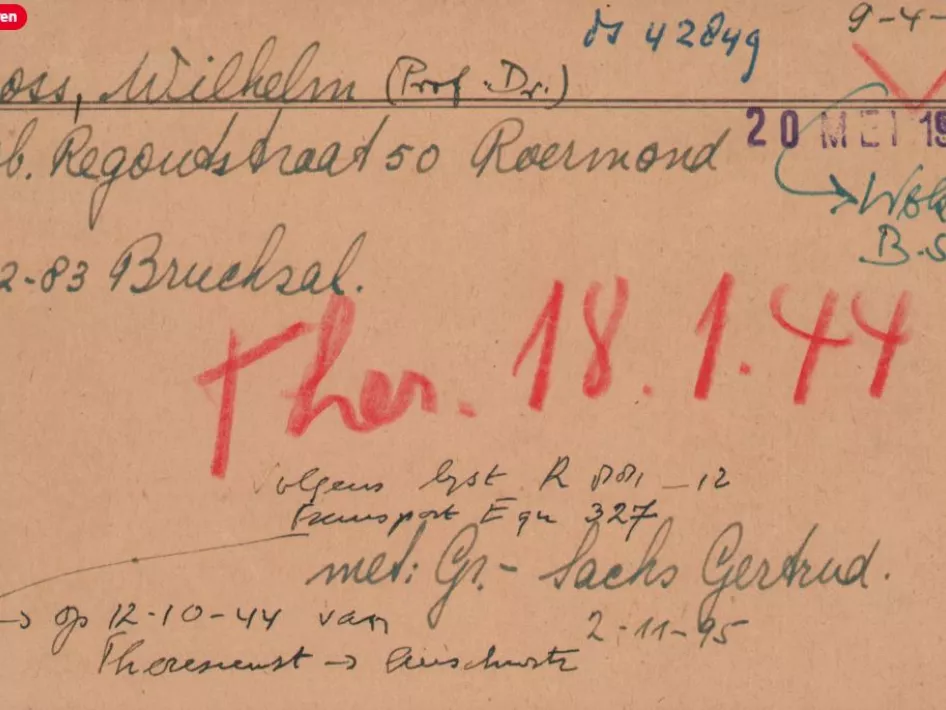 en
9-4-
42849
oss, Wilhelm (Prof. Dr.)
20 MEI 19
b. Regoutstraat 50 Roermond
B.S
2-83 Bruchsal.
Ther. 18.1.44
volgens lyst R _12
transport Eq 327
met: Gr.- Sachs Gertrud.
→ op 12-10-44 van
2-11-95
Theresienst → Auschwitz